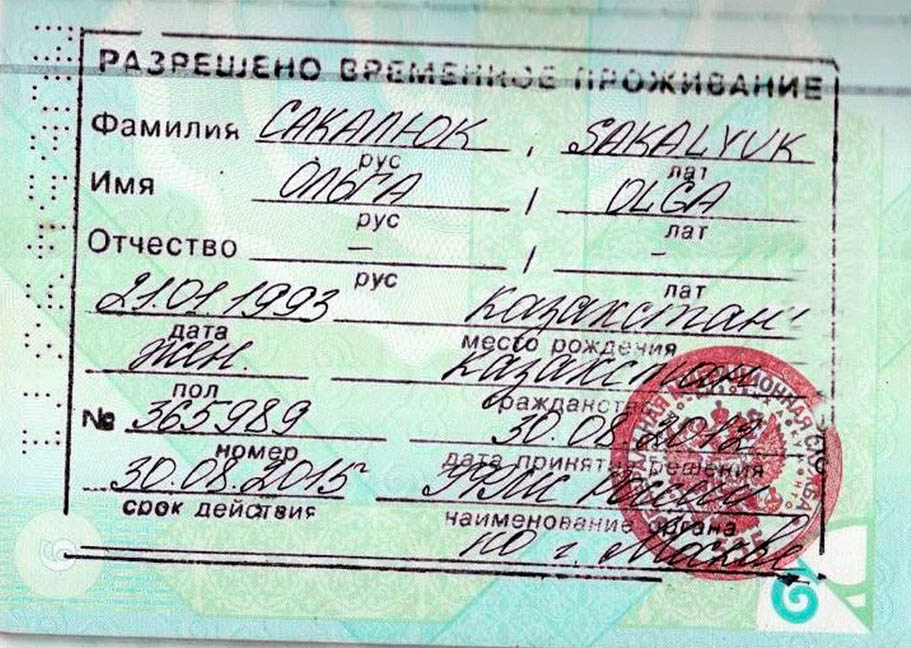 РАЗРЕШЕНО ВРЕМЕННОЕ ПРОЖИВАНИЕ
Фамилия САКАЛЮК , SAKALYUK
рус лат
Имя ОЛЬГА / OLGA
рус лат
Отчество – / -
рус лат
21.01.1993 Казахстан
дата место рождения
жен. Казахстан
пол гражданство
№ 365989 30.08.2012
номер дата принятия решения
30.08.2015 УФМС России
срок действия наименование органа
по г. Москве